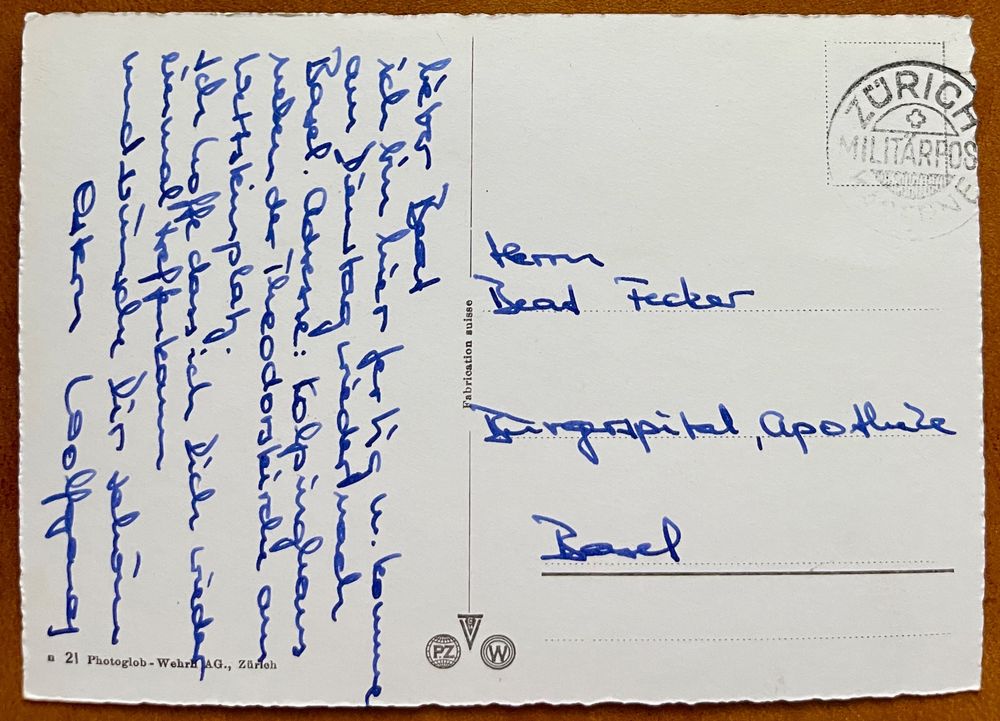 Lieber Beat
ich bin hier fertig u. komme
am Dienstag wieder nach
Basel. Adresse: Kolpinghaus
neben der Theodorskirche am
Wettsteinplatz.
Ich hoffe dass ich Dich wieder
einmal treffen kann
und wünsche Dir schöne
Ostern Wolfgang
Fabrication suisse
ZÜRICH
MILITÄRPOS
Herrn
Beat Fecker
Bürgerspital, Apotheke
Basel
PZ
W
n 21 Photoglob-Wehrli AG., Zürich